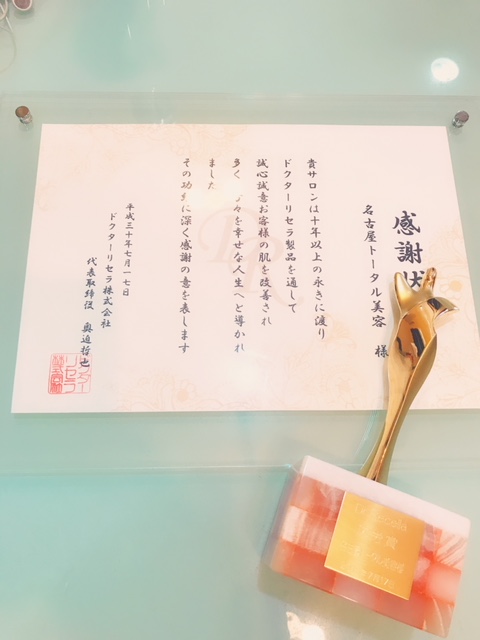 感謝状
名古屋トータル美容 様
貴サロンは十年以上の永きに渡り
ドクターリセラ製品を通して
誠心誠意お客様の肌を改善され
多く 々を幸せな人生へと導かれ
ました
その功 に深く感謝の意を表します
平成三十年七月一七日
ドクターリセラ株式会社
代表取締役 奥迫哲也
賞